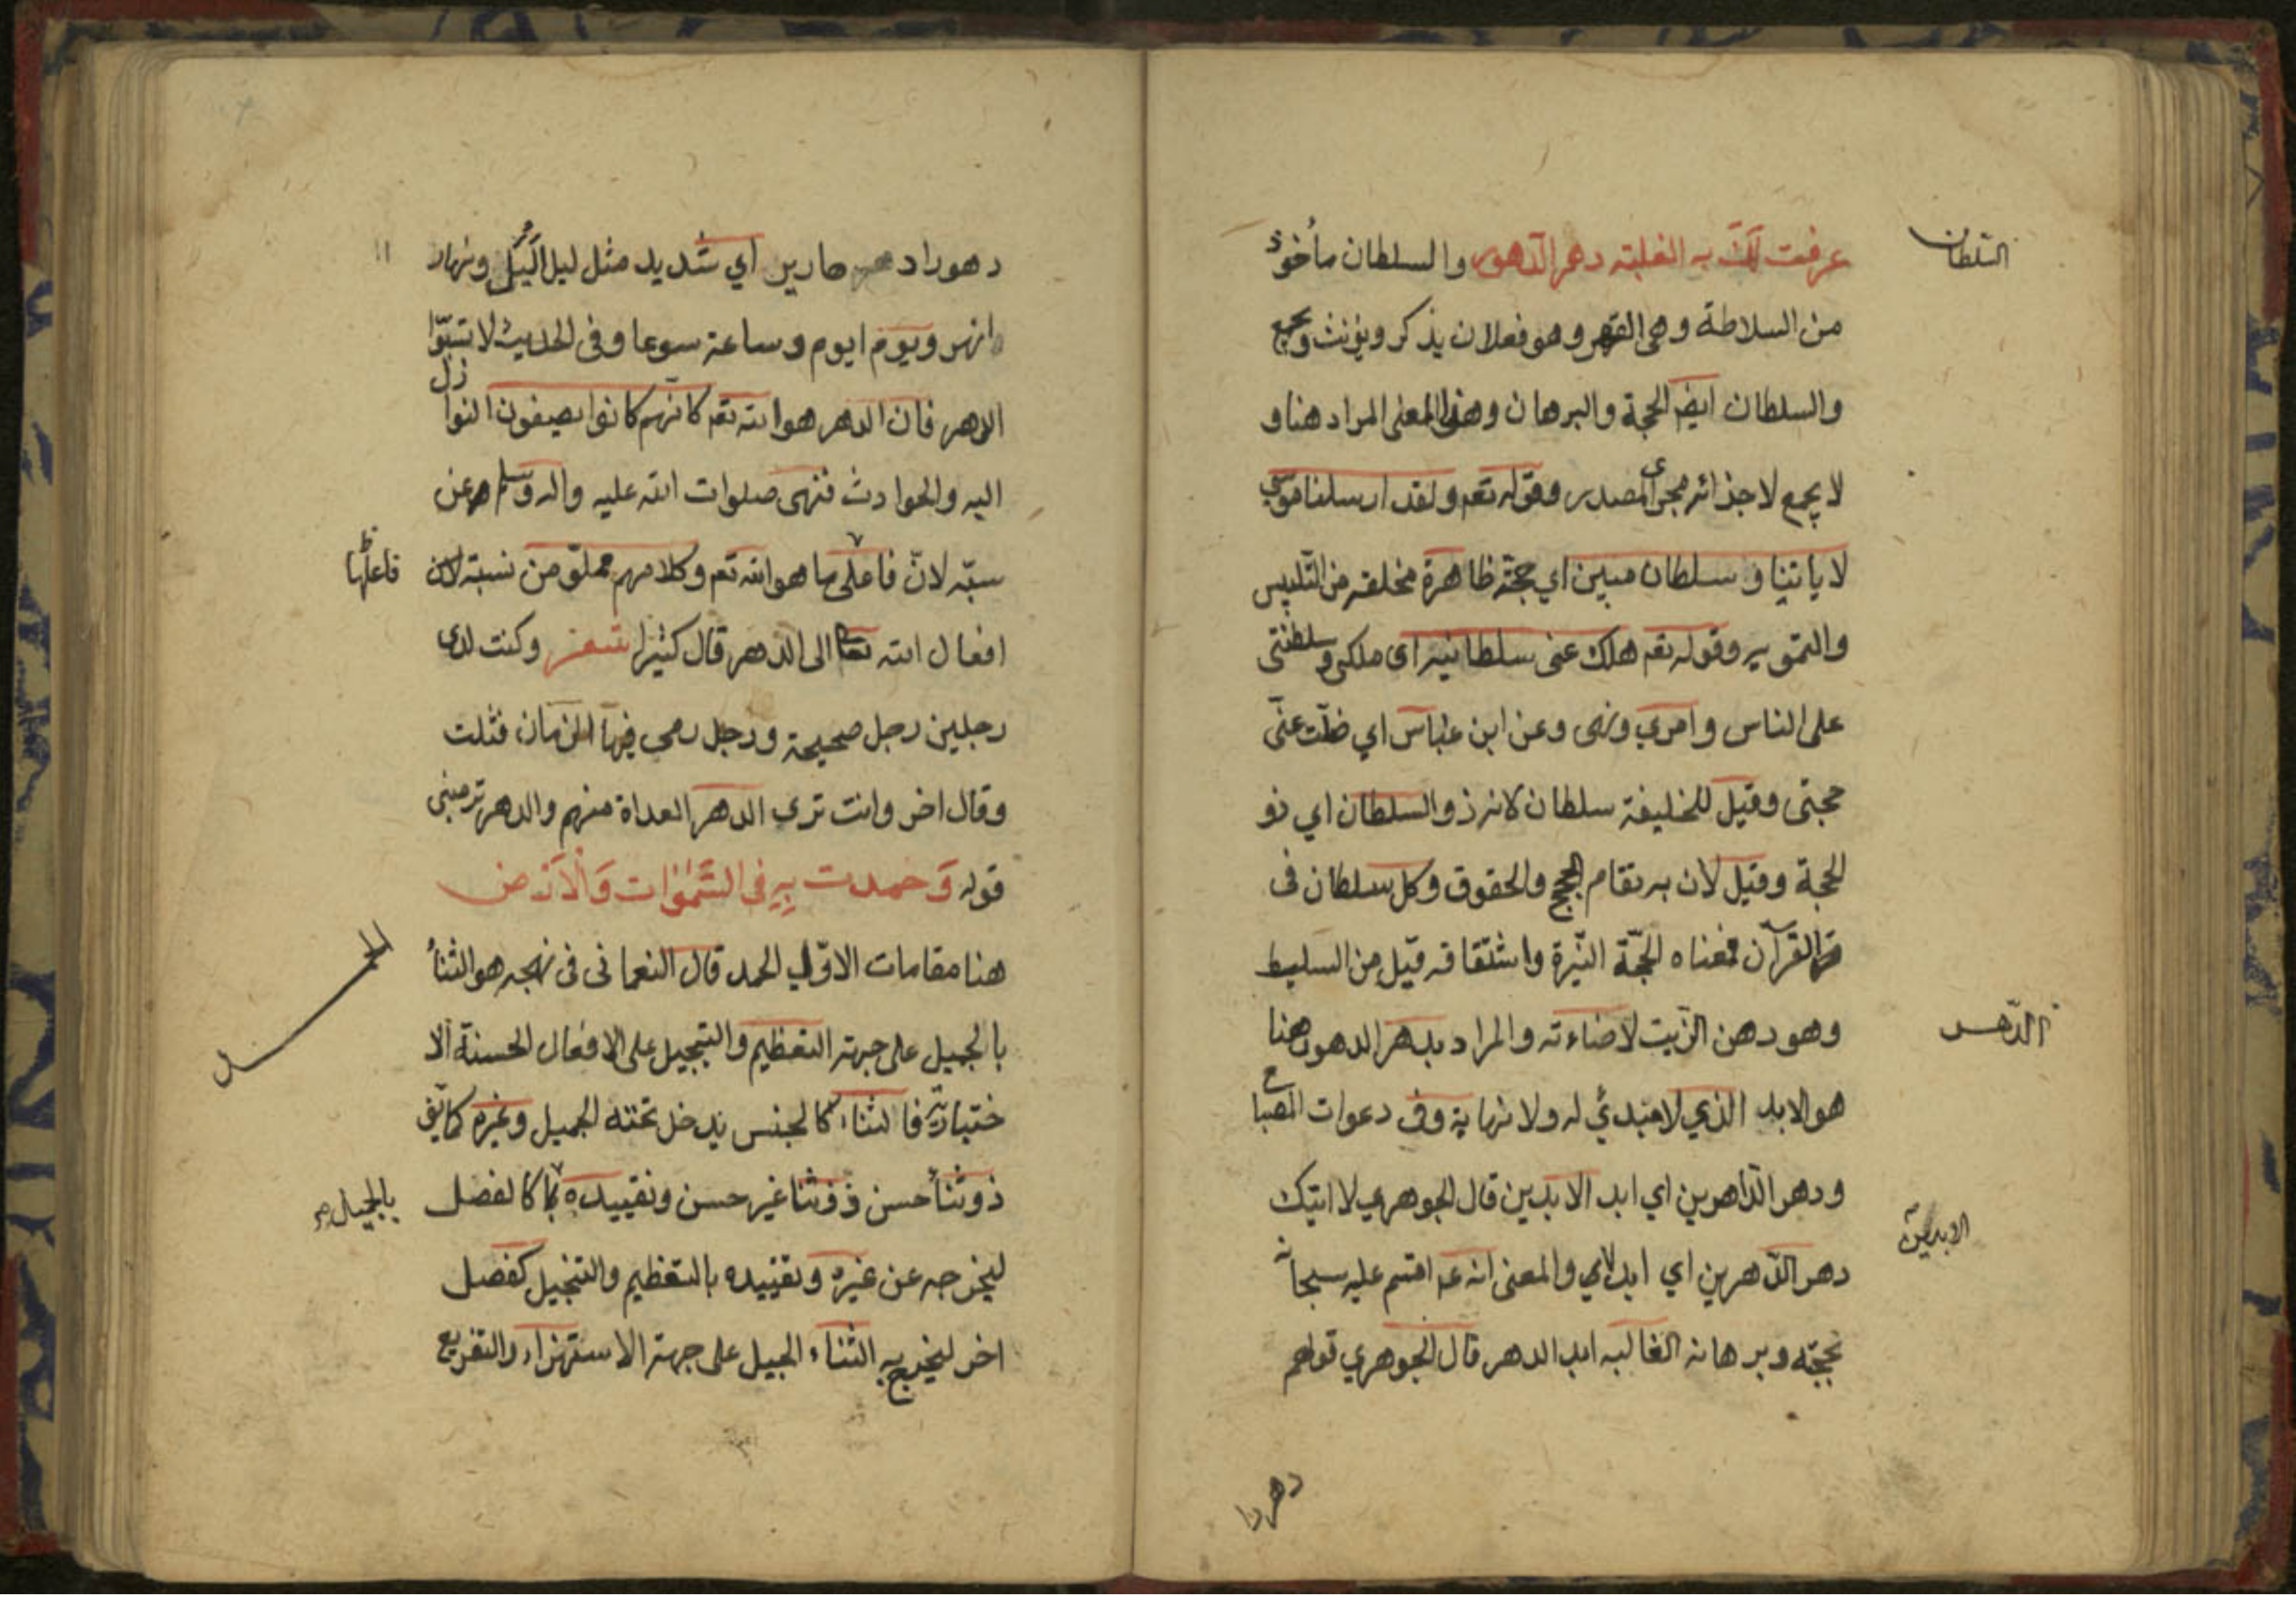 السلطان
عرفت لك به الغلبة دهر الدهور والسلطان مأخوذ
من السلاطة وهى القهر وهو فعلان يذكر ويؤنث ويجمع
والسلطان ايض الحجة والبرهان وهذا المعنى المراد هنا و
لا يجمع لاجرائه مجرى المصدر وقوله تعم ولقد ارسلنا موسى
باياتنا و سلطان مبين اي حجة ظاهرة مخلصه من التلبيس
والتمويه وقوله تعم هلك عنى سلطانيه اى ملكى وسلطنتى
على الناس وامري ونهى وعن ابن عباس اي ضلت عنى
حجتى وقيل للخليفة سلطان لانه ذو السلطان اي ذو
الحجة وقيل لان به تقام الحجج والحقوق وكل سلطان فى
القرآن فمعناه الحجة النيرة واشتقاقه قيل من السليط
وهو دهن الزيت لاضاءته والمراد بدهر الدهور هنا
الدهر
هو الابد الذي لا مبدئ له ولا نهاية وفى دعوات المصباح
ودهر الداهرين اي ابد الابدين قال الجوهري لا اتيك
الابدين
دهر الداهرين اي ابدا والمعنى انه عم اقسم عليه سبحانه
بحجته وبرهانه الغالبه ابد الدهر قال الجوهري قولهم
دهر دا
١١
دهور ادهر دهارير اي شديد مثل ليل اليل ونهار
انهر ويوم ايوم وساعة سوعا وفى الحديث لا تسبوا
الدهر فان الدهر هو الله تعم كانهم كانوا يضيفون النوازل
اليه والحوادث فنهى صلوات الله عليه واله وسلم عن
سبه لان فاعلها هو الله تعم وكلامهم من نسبة
فاعلها
افعال الله تعم الى الدهر قال كثير شعر وكنت لدى
رجلين رجل صحيحة ورجل رمى فيها الزمان فشلت
وقال اخر وانت ترى الدهر العداة منهم والدهر ترمينى
قوله وَحمدت بِهِ فى السَّمٰوٰات وَالْاَرْض
هنا مقامات الاول الحمد قال النعمانى فى نهجه هو الثناء
الحمد
بالجميل على جهة التعظيم والتبجيل على الافعال الحسنة الا
ختيارية فالثناء كالجنس يدخل تحته الجميل وغيره كما يق
ذو ثناء حسن وذو ثنا غير حسن وتقييده كالفصل
بالجميل
ليخرجه عن غيره وتقييده بالتعظيم والتبجيل كفصل
اخر ليخرج به الثناء الجميل على جهة الاستهزاء والتقريع